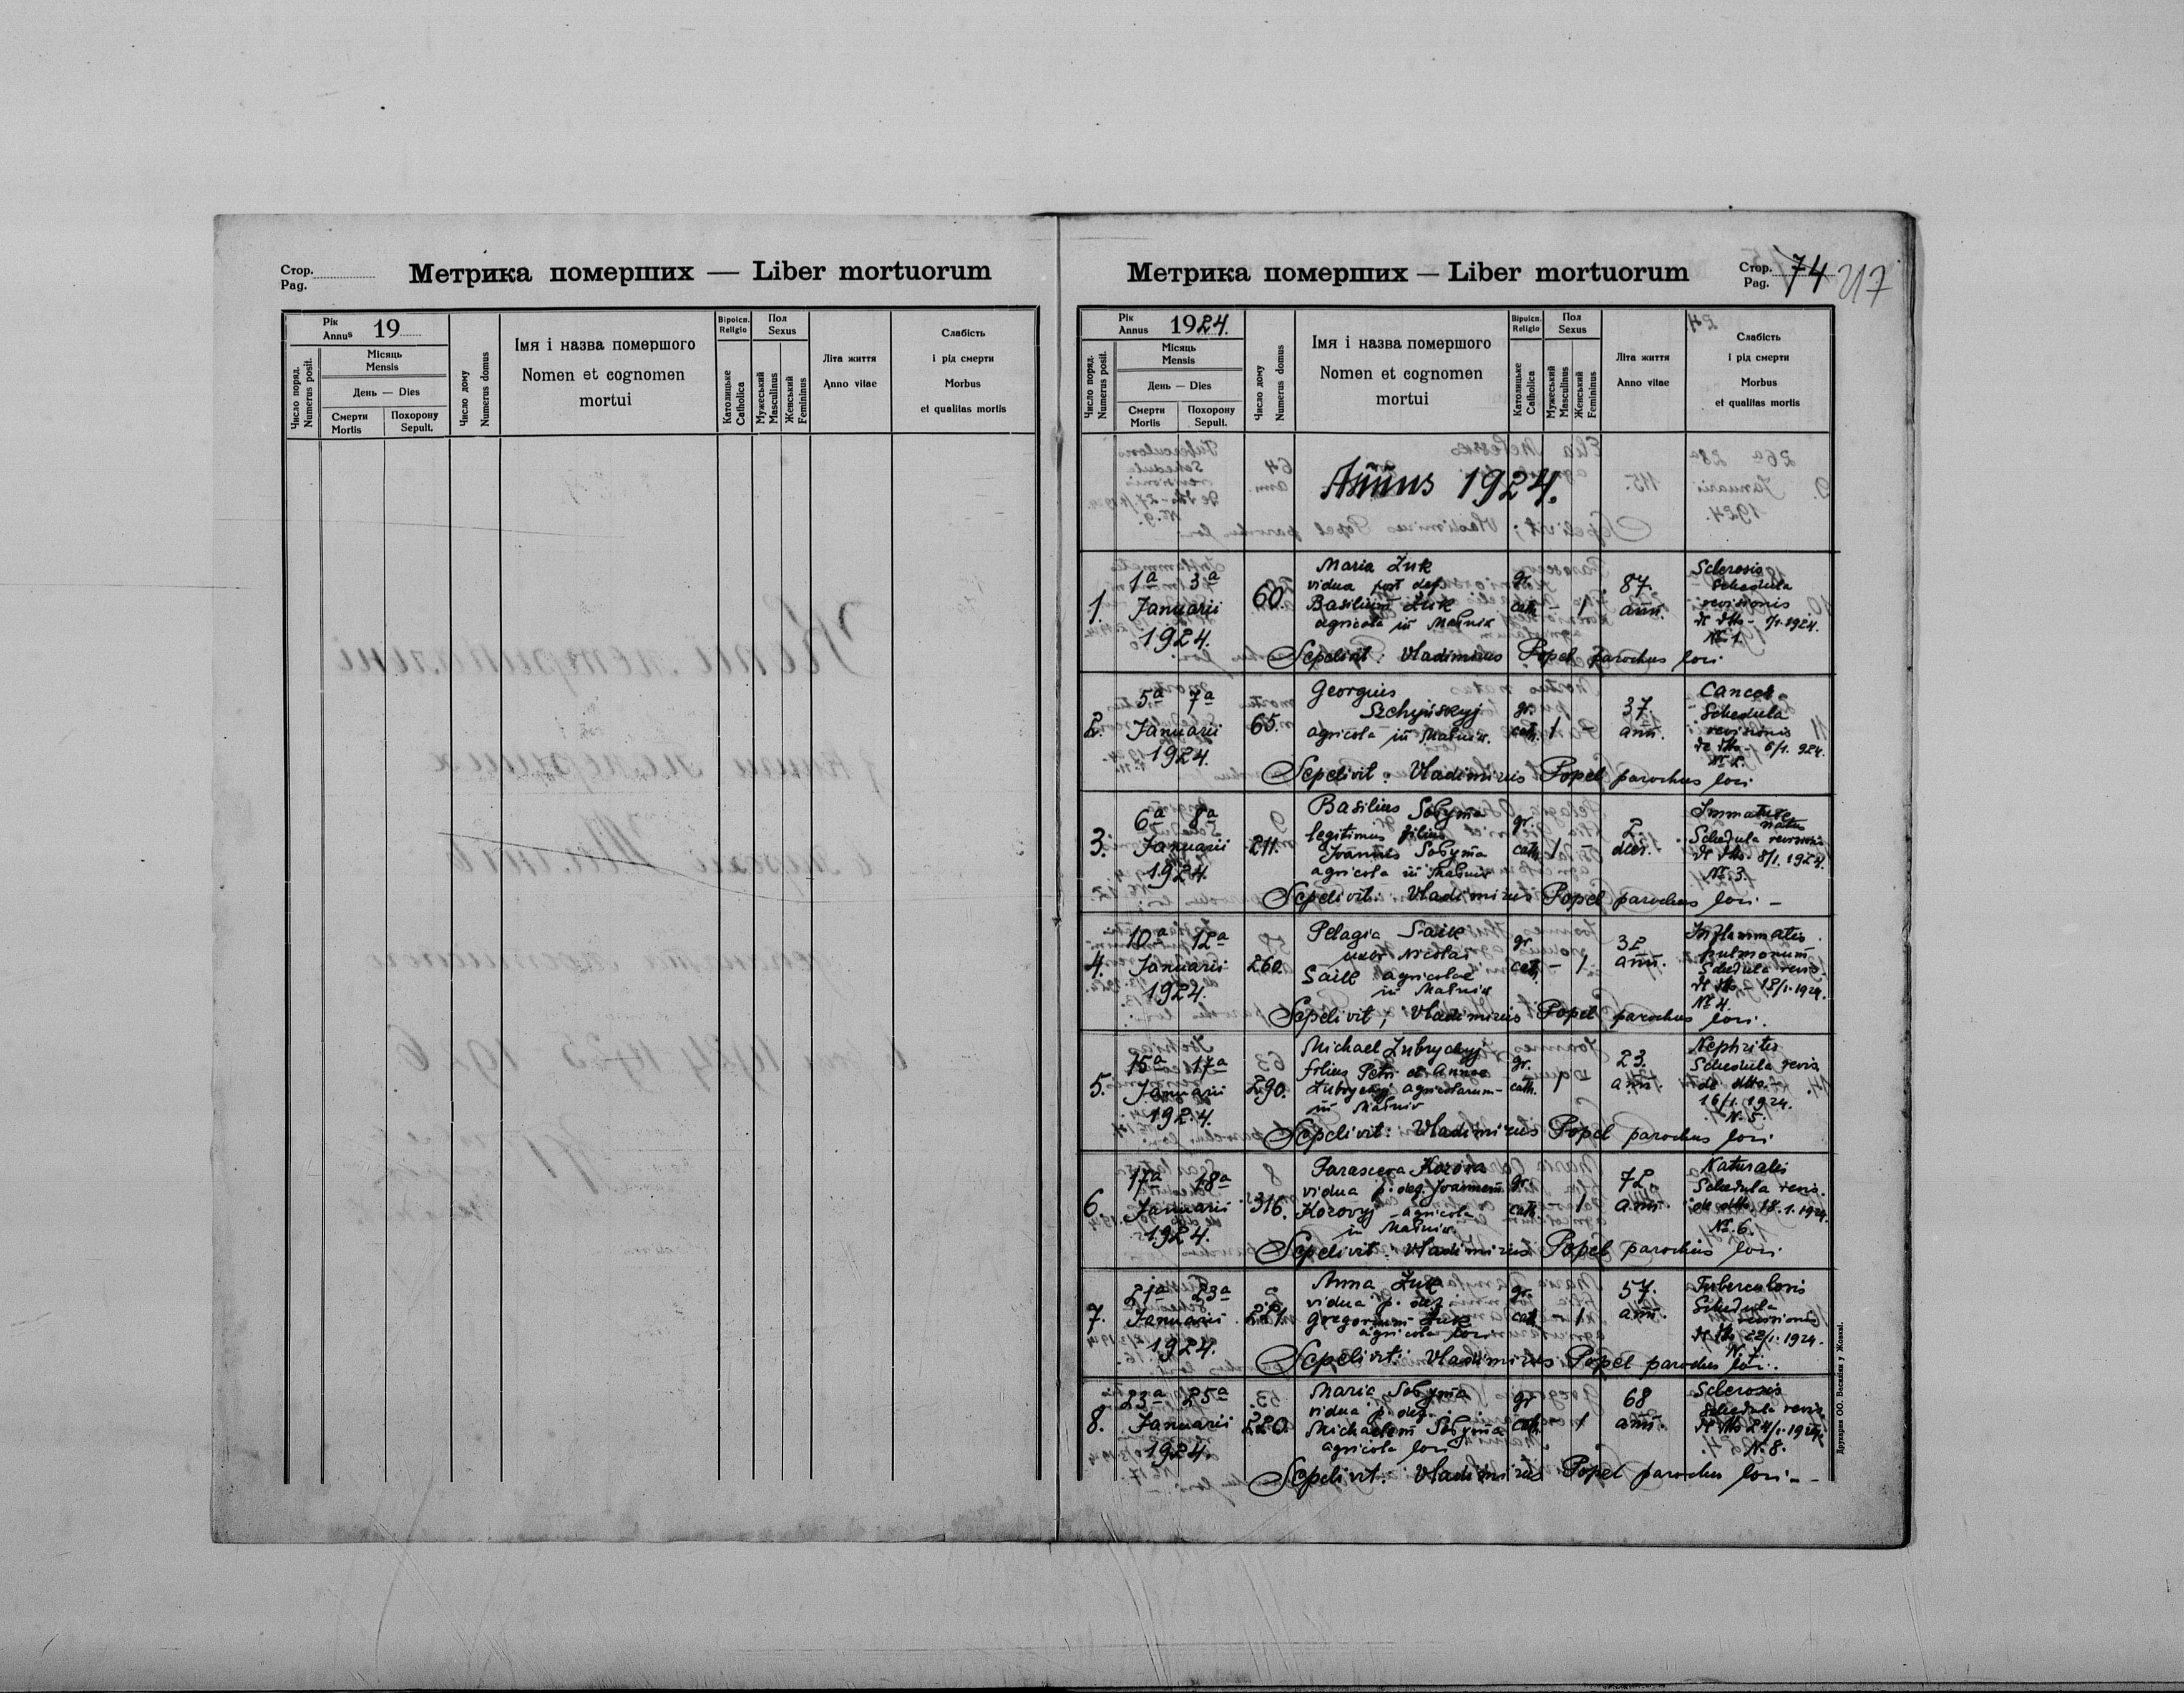 Стор.
Pag.
Метрика померших — Liber mortuorum
Рік
Annus 19
Місяць
Mensis
День — Dies
Смерти
Mortis
Похорону
Sepult.
Число поряд.
Numerus posit.
Число дому
Numerus domus
Імя і назва помершого
Nomen et cognomen
mortui
Віроісп.
Religio
Католицьке
Catholica
Пол
Sexus
Мужеський
Masculinus
Женський
Femininus
Літа життя
Anno vitae
Слабість
і рід смерти
Morbus
et qualitas mortis
Метрика померших — Liber mortuorum
Стор.
Pag.
74
217
Рік
Annus 1924.
Місяць
Mensis
День — Dies
Смерти
Mortis
Похорону
Sepult.
Число поряд.
Numerus posit.
Число дому
Numerus domus
Імя і назва помершого
Nomen et cognomen
mortui
Віроісп.
Religio
Католицьке
Catholica
Пол
Sexus
Мужеський
Masculinus
Женський
Femininus
Літа життя
Anno vitae
Слабість
і рід смерти
Morbus
et qualitas mortis
Annus 1924.
1. 1a 3a Januarii 1924. 60.
Maria Żuk
vidua post def.
Basilium Żuk
agricola in
gr. cath. – 1 87. ann.
Sclerosis
Schedula
revisionis
de dtto – 1/1. 1924.
№ 1.
Sepelivit: Vladimirus Popel parochus loci
2. 5a 7a Januarii 1924. 65.
Georgius
agricola in
gr. cath. 1 – 37. ann.
Cancer
Schedula
revisionis
de dtto – 6/1. 924.
№ 2.
Sepelivit: Vladimirus Popel parochus loci
3. 6a 8a Januarii 1924. 211.
Basilius Sobyma
legitimus filius
Joannes Sobyma
agricola in
gr. cath. 1 – 2. dier.
Immature
natus
Schedula revisionis
de dtto – 8/1. 1924.
№ 3.
Sepelivit: Vladimirus Popel parochus loci –
4. 10a 12a Januarii 1924. 260.
Pelagia Saik
uxor Nicolai
Saik agricolae
in
gr. cath. – 1 32 ann.
Inflammatio
pulmonum
Schedula revis.
de dtto 12/1. 1924.
№ 4.
Sepelivit; Vladimirus Popel parochus loci.
5. 15a 17a Januarii 1924. 290.
Michael Zubryckyj
filius Petri et Annae
Zubryckyj agricolarum
in
gr. cath. 1 23. ann.
Nephritis
Schedula revis.
de dtto –
16/1. 1924.
N. 5.
Sepelivit: Vladimirus Popel parochus loci
6. 17a 18a Januarii 1924. 316.
Parasceva Kozova
vidua p. def. Joannem
Kozovyj agricola
in
gr. cath. – 1 72. ann.
Naturalis
Schedula revis.
de dtto 18. 1. 1924.
№. 6.
Sepelivit: Vladimirus Popel parochus loci
7. 21a 23a Januarii 1924. 221.
Anna Żuk
vidua p. def.
Gregorium Żuk
agricola loci
gr. cath. – 1 57. ann.
Tuberculosis
Schedula
revisionis
de dtto 22/1. 1924.
N. 7.
Sepelivit: Vladimirus Popel parochus loci.
8. 23a 25a Januarii 1924. 220.
Maria Sobyma
vidua p. def.
Michaelem Sobyma
agricola loci
gr cath. – 1 68 ann.
Sclerosis
Schedula revis.
de dtto 24/1. 1924.
N. 8.
Sepelivit: Vladimirus Popel parochus loci –
Друкарня ОО. Василіян у Жовкві.